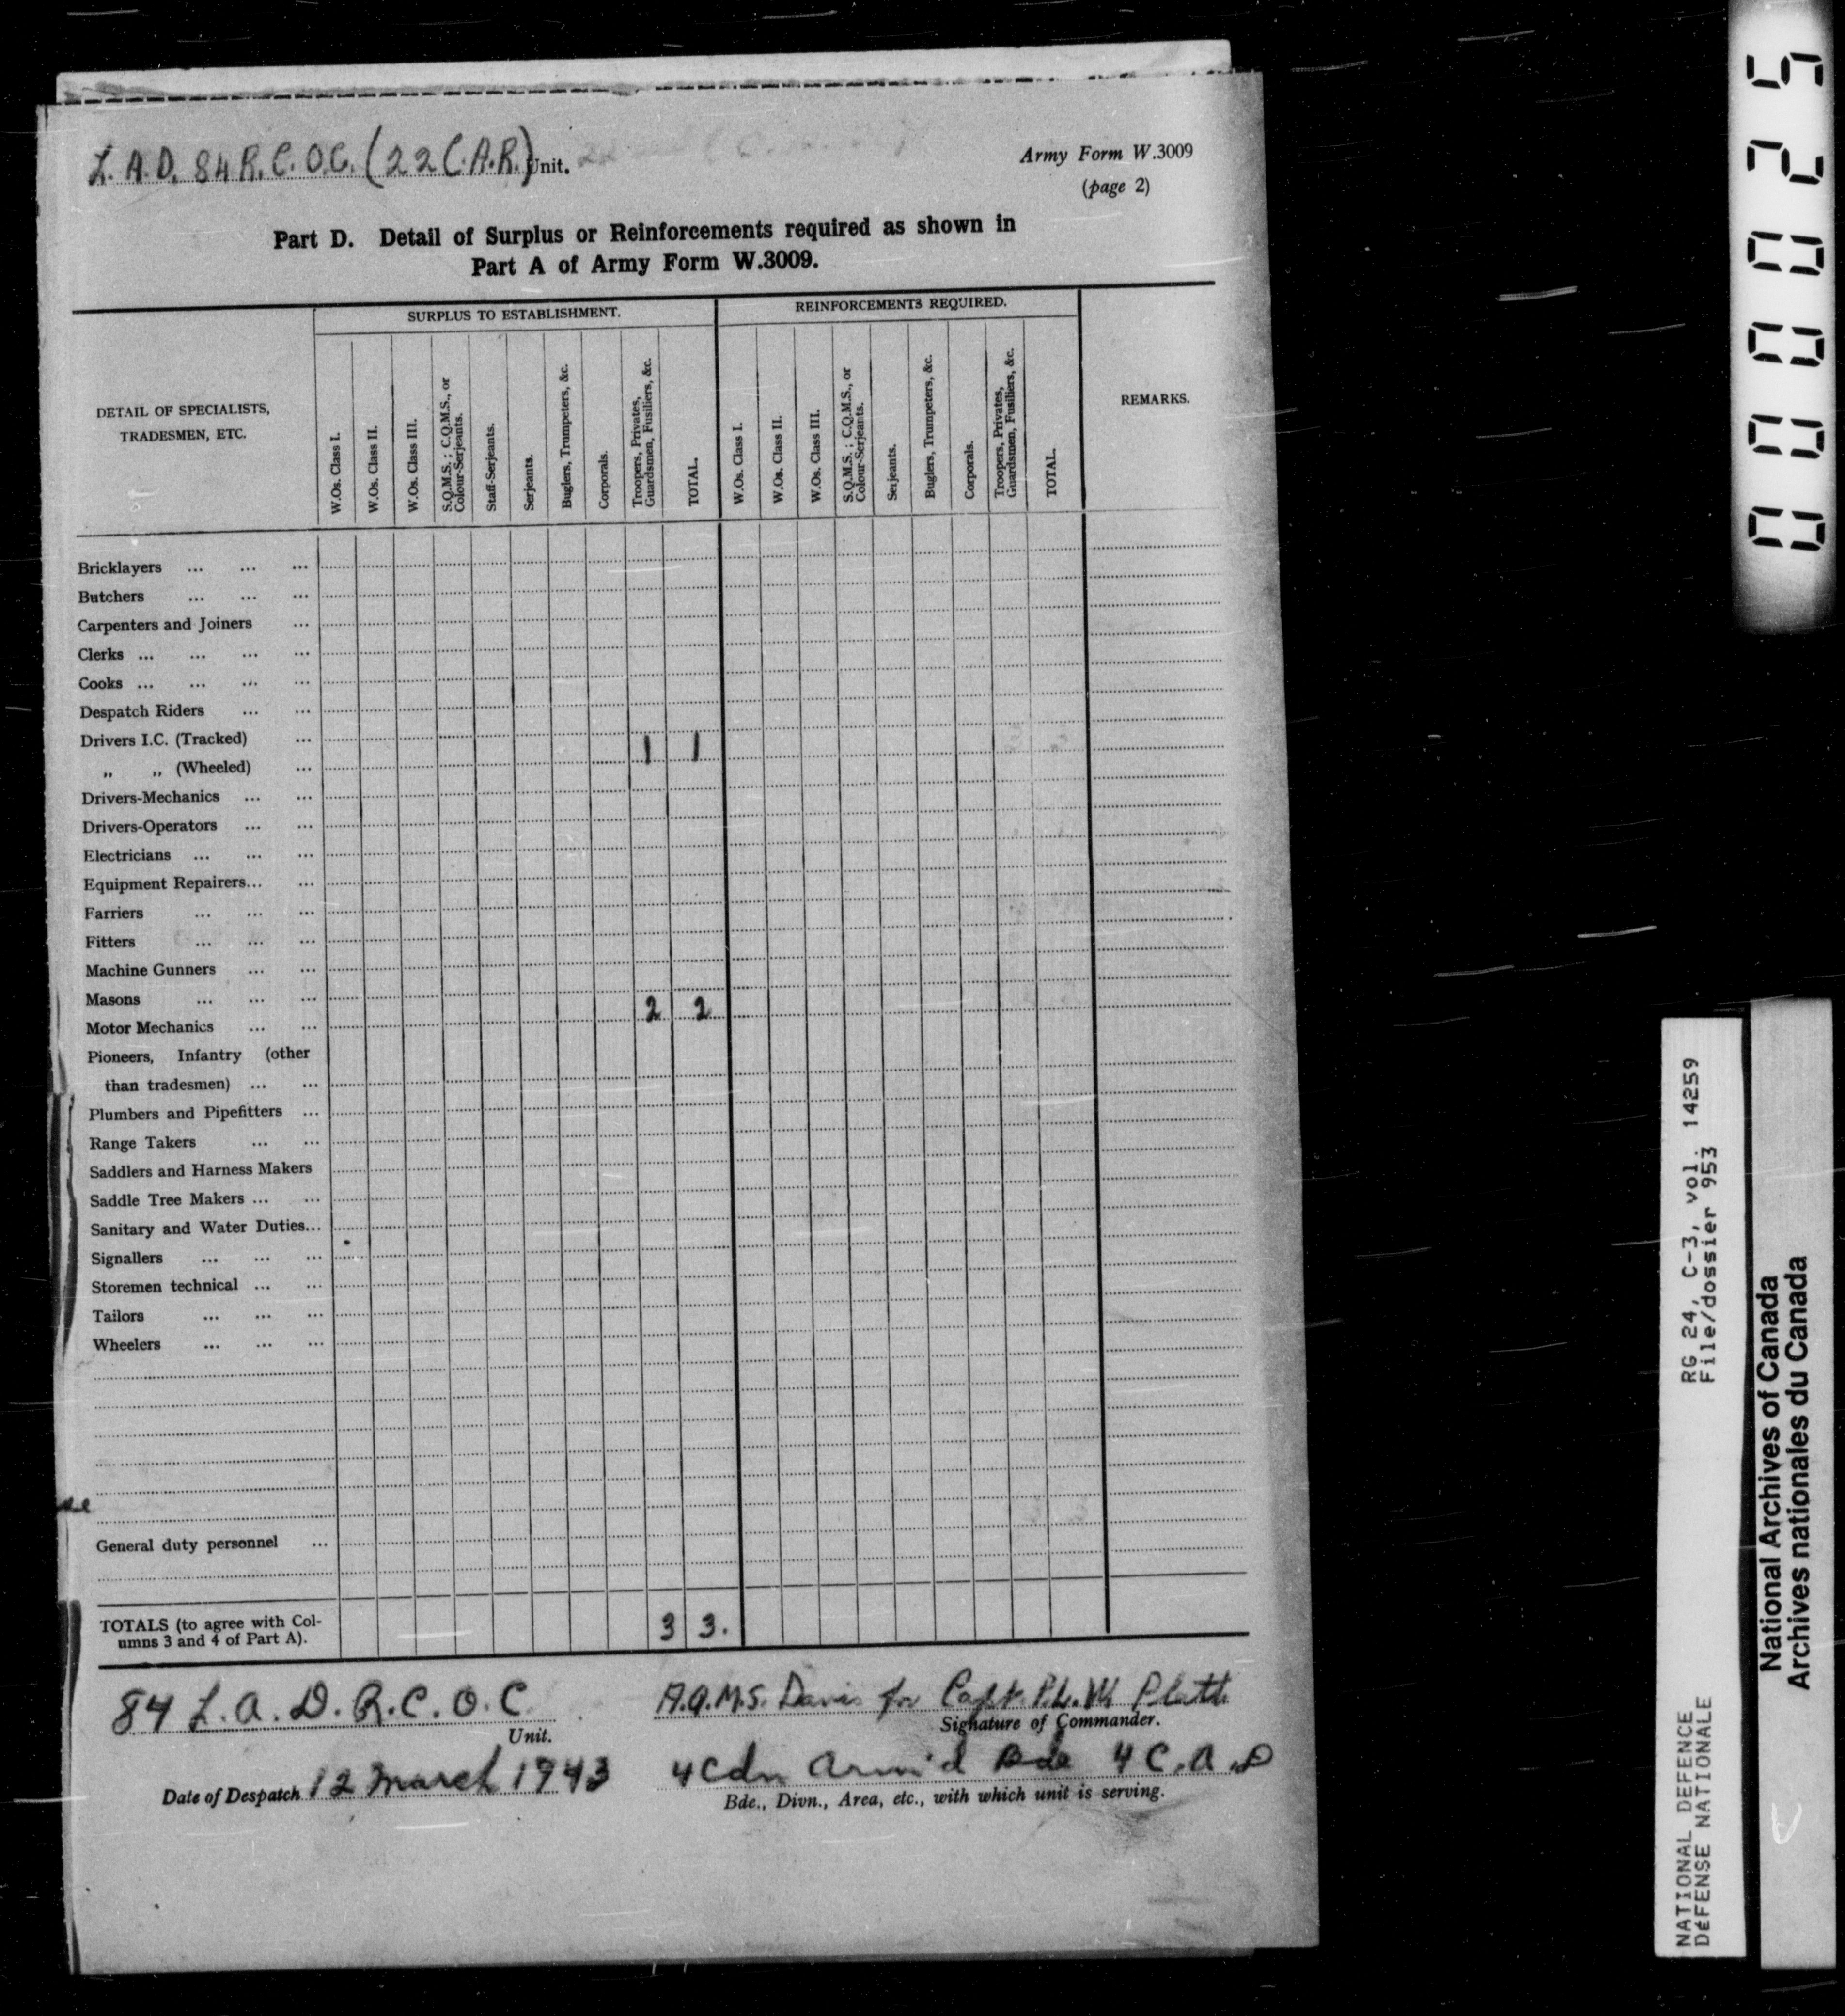 L.A.D. 84 R.C.O.C. (22 C.A.R.) Unit.
Army Form W.3009
(page 2)
Part D. Detail of Surplus or Reinforcements required as shown in
Part A of Army Form W.3009.
DETAIL OF SPECIALISTS,
TRADESMEN, ETC.
SURPLUS TO ESTABLISHMENT.
W.Os. Class I.
W.Os. Class II.
W.Os. Class III.
S.Q.M.S.; C.Q.M.S., or
Colour-Serjeants.
Staff-Serjeants.
Serjeants.
Buglers, Trumpeters, &c.
Corporals.
Troopers, Privates,
Guardsmen, Fusiliers, &c.
TOTAL.
REINFORCEMENTS REQUIRED.
W.Os. Class I.
W.Os. Class II.
W.Os. Class III.
S.Q.M.S.; C.Q.M.S., or
Colour-Serjeants.
Serjeants.
Buglers, Trumpeters, &c.
Corporals.
Troopers, Privates,
Guardsmen, Fusiliers, &c.
TOTAL.
REMARKS.
Bricklayers ... ... ...
Butchers ... ... ...
Carpenters and Joiners ...
Clerks ... ... ... ...
Cooks ... ... ... ...
Despatch Riders ... ...
Drivers I.C. (Tracked) ...
„ „ (Wheeled) ... 1 1
Drivers-Mechanics ... ...
Drivers-Operators ... ...
Electricians ... ... ...
Equipment Repairers... ...
Farriers ... ... ...
Fitters ... ... ...
Machine Gunners ... ...
Masons ... ... ...
Motor Mechanics ... ... 2 2
Pioneers, Infantry (other
than tradesmen) ... ...
Plumbers and Pipefitters ...
Range Takers ... ...
Saddlers and Harness Makers
Saddle Tree Makers ... ...
Sanitary and Water Duties...
Signallers ... ... ...
Storemen technical ... ...
Tailors ... ... ...
Wheelers ... ... ...
General duty personnel ...
TOTALS (to agree with Col-
umns 3 and 4 of Part A). 3 3.
84 L.A.D. R.C.O.C
Unit.
A.Q.M.S. Davis for Capt. P.L.W Platt
Signature of Commander.
Date of Despatch 12 March 1943
4 Cdn Arm'd Bde 4 C.A.D
Bde., Divn., Area, etc., with which unit is serving.
00025
RG 24, C-3, vol. 14259
File/dossier 953
NATIONAL DEFENCE
DÉFENSE NATIONALE
National Archives of Canada
Archives nationales du Canada